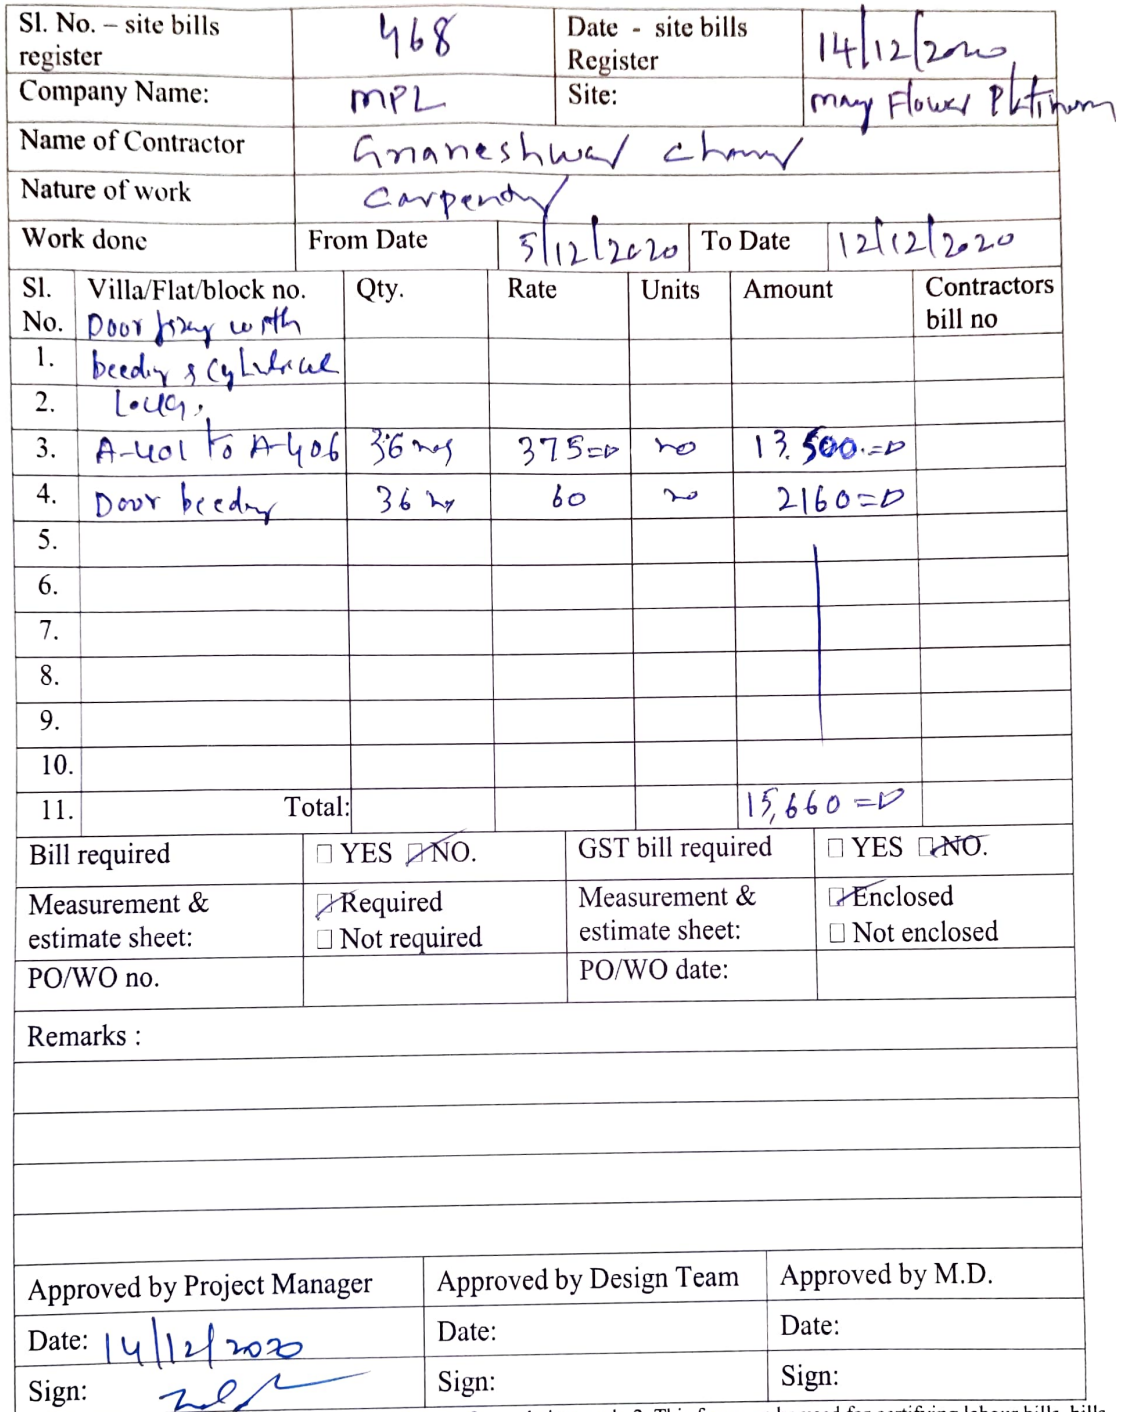 Sl. No. – site bills register 468 Date - site bills Register 14/12/2020
Company Name: MPL Site: May Flower Platinum
Name of Contractor Gnaneshwar Chary
Nature of work Carpentry
Work done From Date 5/12/2020 To Date 12/12/2020
Sl. No. Villa/Flat/block no. Qty. Rate Units Amount Contractors bill no
Door fixing with
1. beeding & Cylindrical
2. Locks.
3. A-401 to A-406 36 nos 375=0 no 13,500.=0
4. Door beeding 36 no 60 no 2160=0
5.
6.
7.
8.
9.
10.
11. Total: 15,660=0
Bill required □ YES ☑ NO. GST bill required □ YES ☑ NO.
Measurement & estimate sheet: ☑ Required □ Not required Measurement & estimate sheet: ☑ Enclosed □ Not enclosed
PO/WO no. PO/WO date:
Remarks :
Approved by Project Manager Approved by Design Team Approved by M.D.
Date: 14/12/2020 Date: Date:
Sign: Sign: Sign: